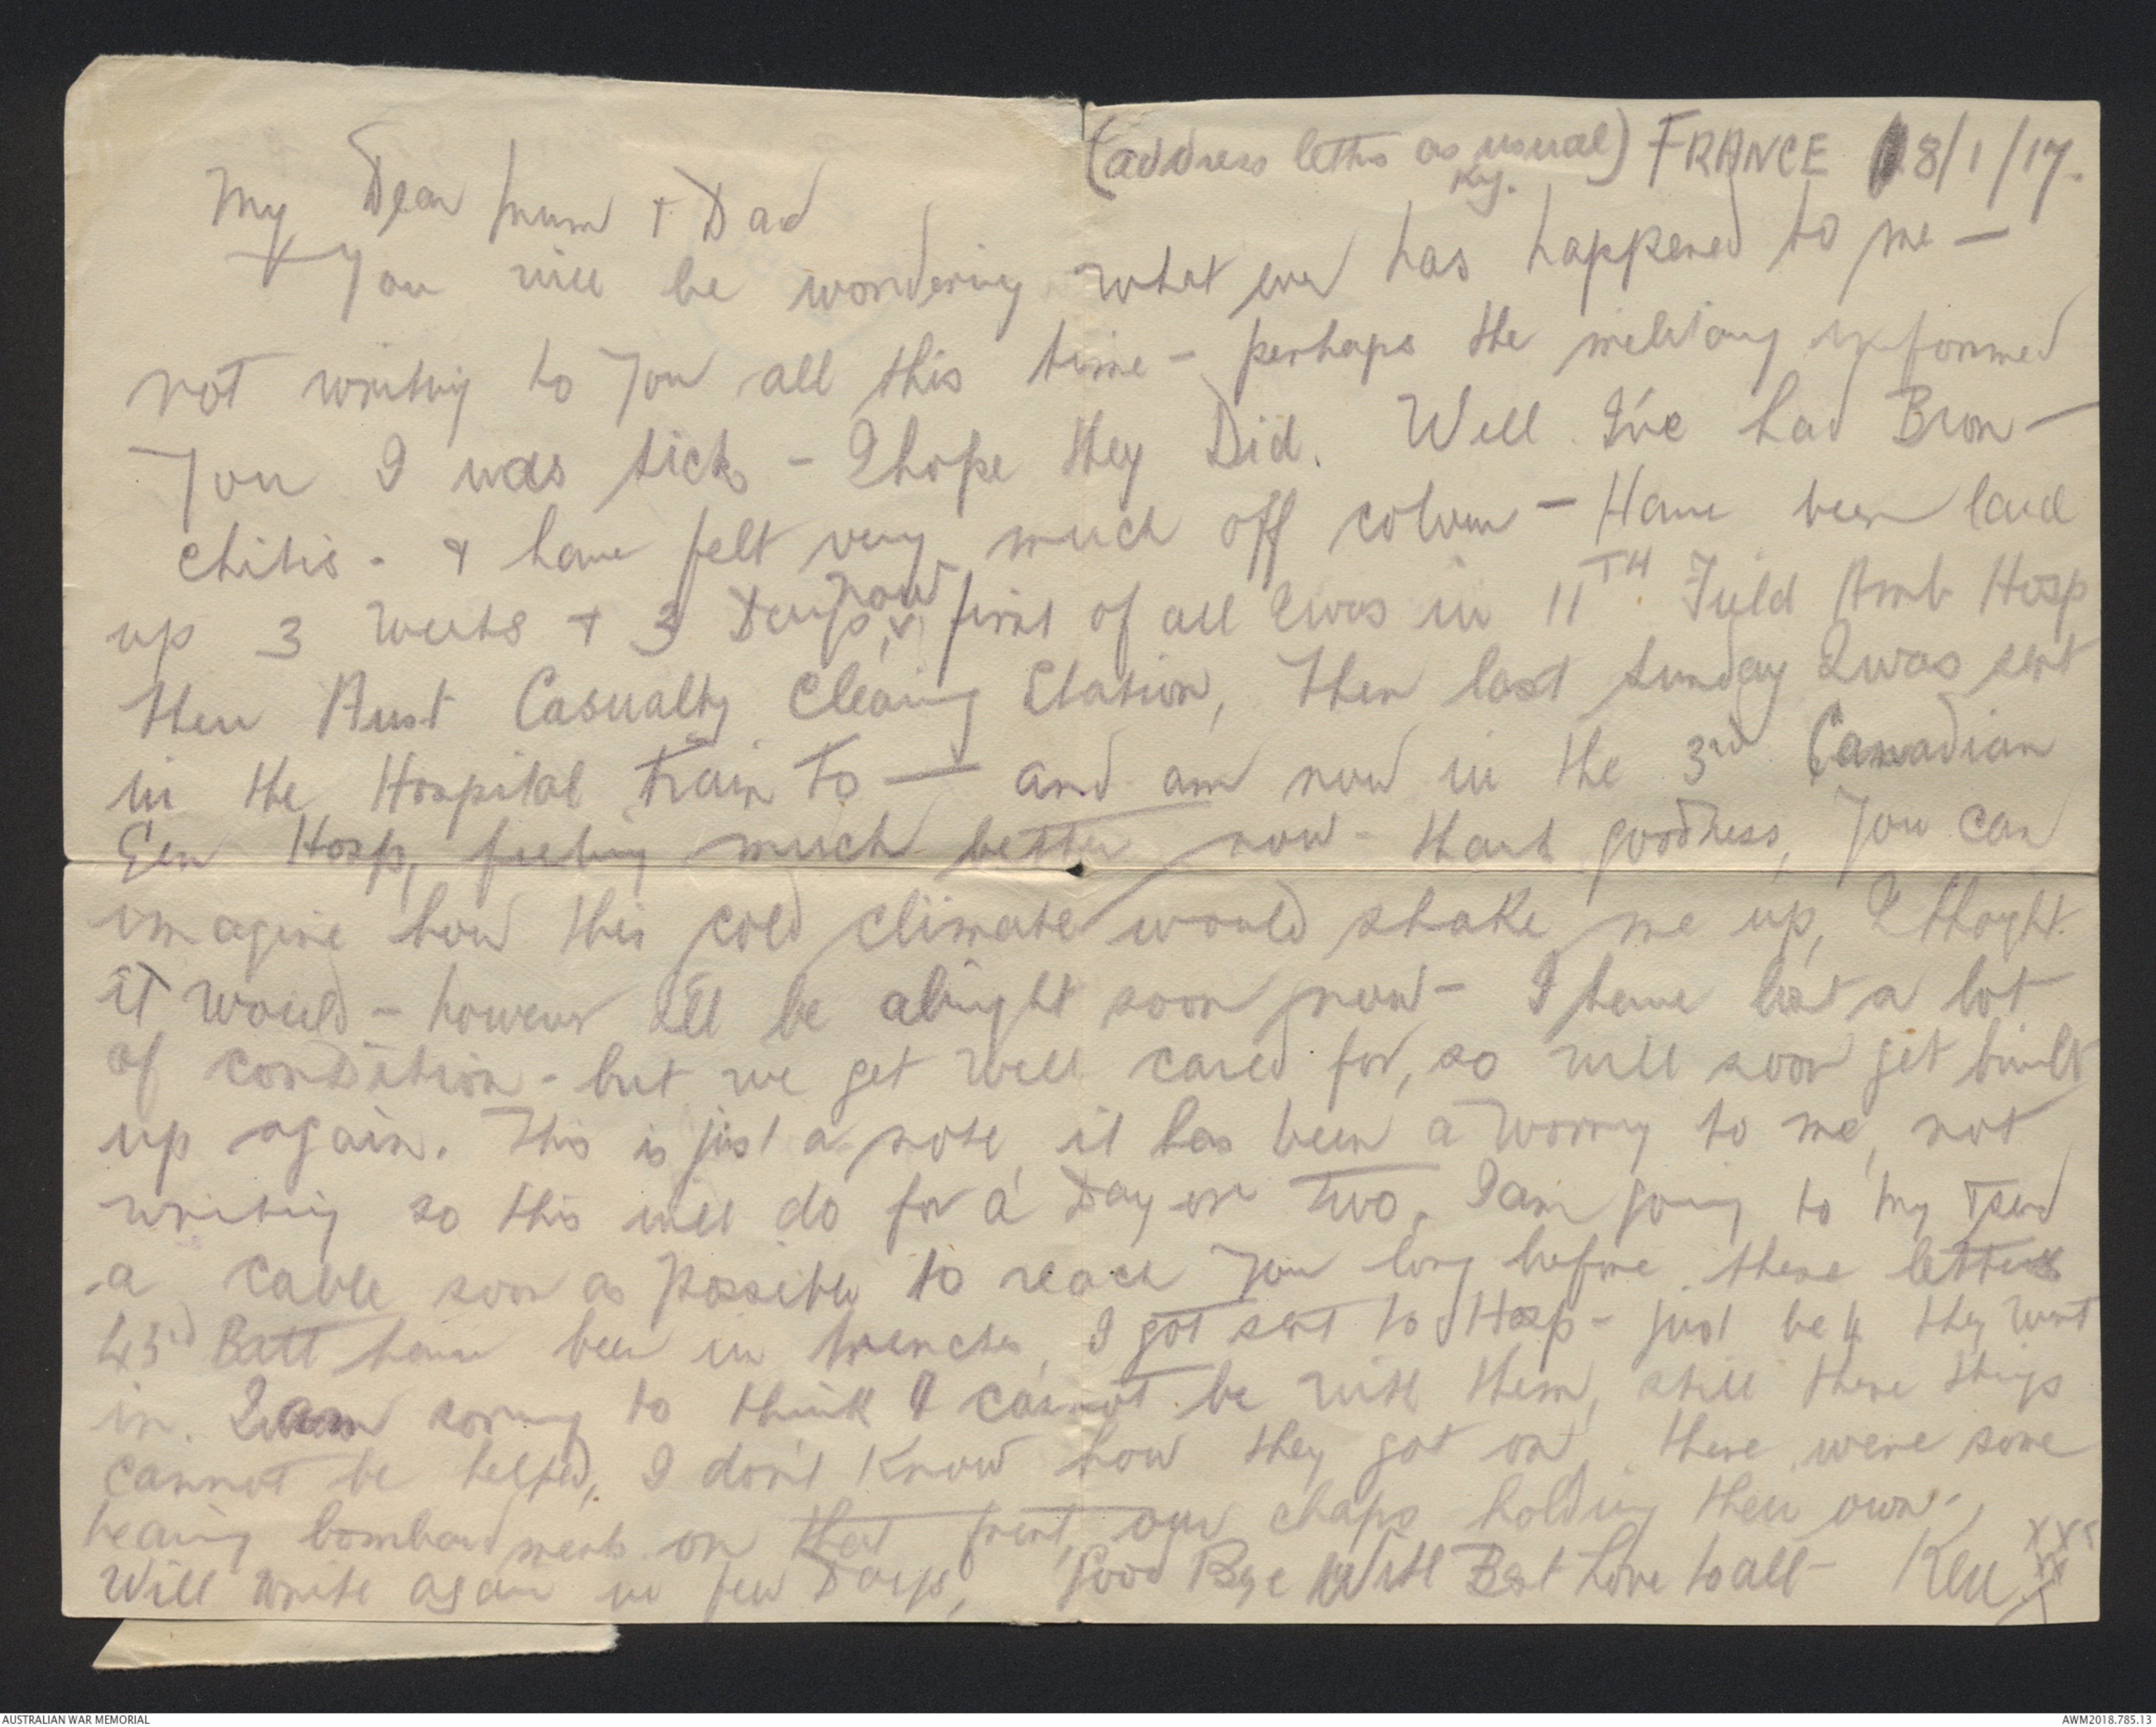 (address letters as usual) FRANCE 18/1/17.
My Dear Mum + Dad
You will be wondering what ever has happened to me —
not writing to you all this time - perhaps the military informed
you I was sick - I hope they Did. Well I've had Bron-
chitis - & have felt very much off colour - Have been laid
up 3 weeks + 3 Days, now first of all I was in 11TH Field Amb Hosp
then Aust Casualty Clearing Station, Then last Sunday I was sent
in the Hospital train To — and am now in the 3rd Canadian
Gen Hosp, feeling much better now - thank goodness, You can
imagine how this cold climate would shake me up, I thoght
it would - however I'll be alright soon now - I have lost a lot
of condition - but we get well cared for, so will soon get built
up again. This is just a note, it has been a worry to me, not
writing so this will do for a Day or two, I am going to try + send
a cable soon as possible to reach you long before these letters
45d Batt have been in trenches, I got sent to Hosp - just be4 they went
in. I am sorry to think I cannot be with them, still these things
cannot be helped, I don't know how they got on, there were some
heavy bombardments on that front, our chaps holding their own -
Will write again in few Days, Good Bye With Best Love to all - Ken xxx
xx
AUSTRALIAN WAR MEMORIAL
AWM2018.785.13